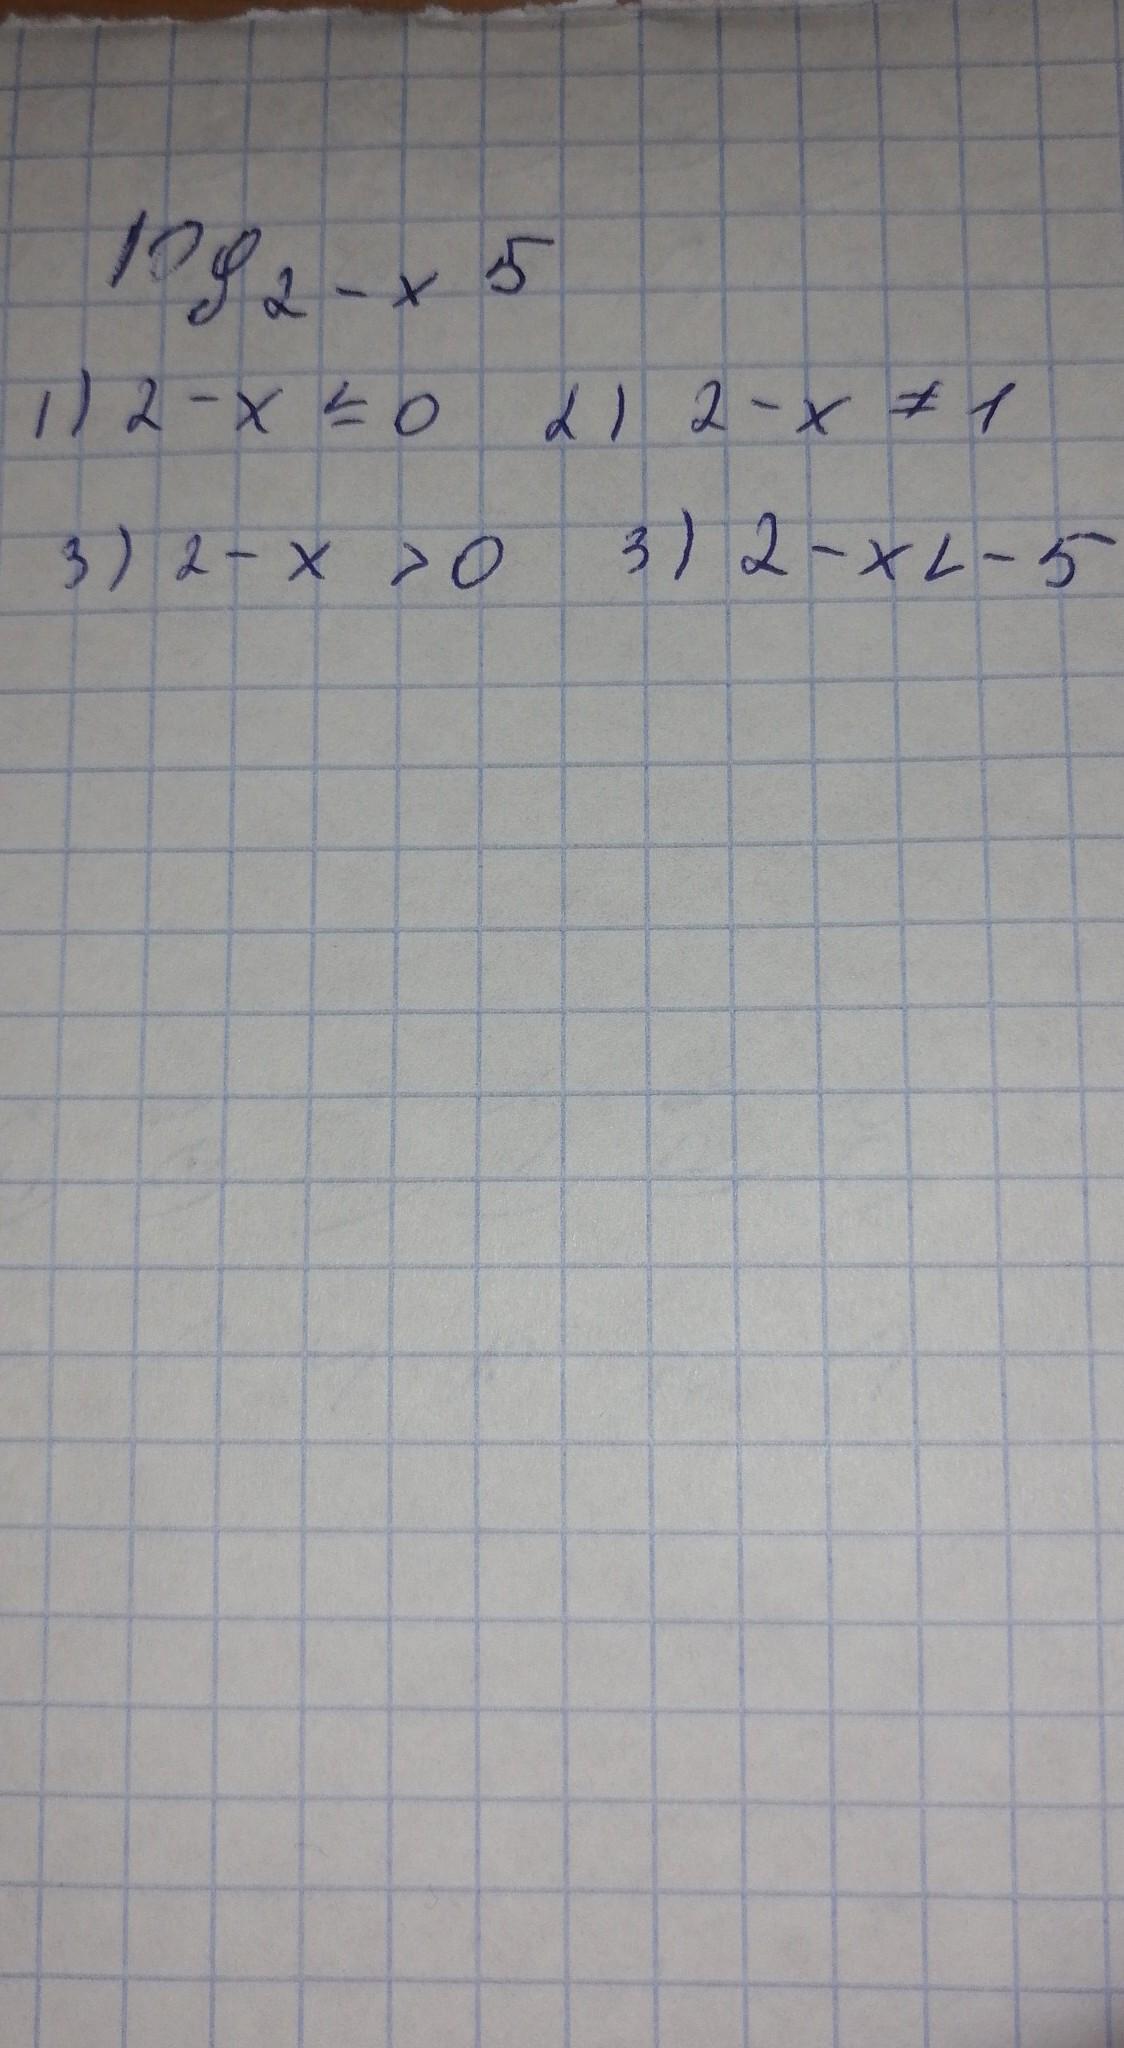 log₂₋ₓ 5
1) 2 - x ≤ 0 2) 2 - x ≠ 1
3) 2 - x > 0 3) 2 - x < - 5